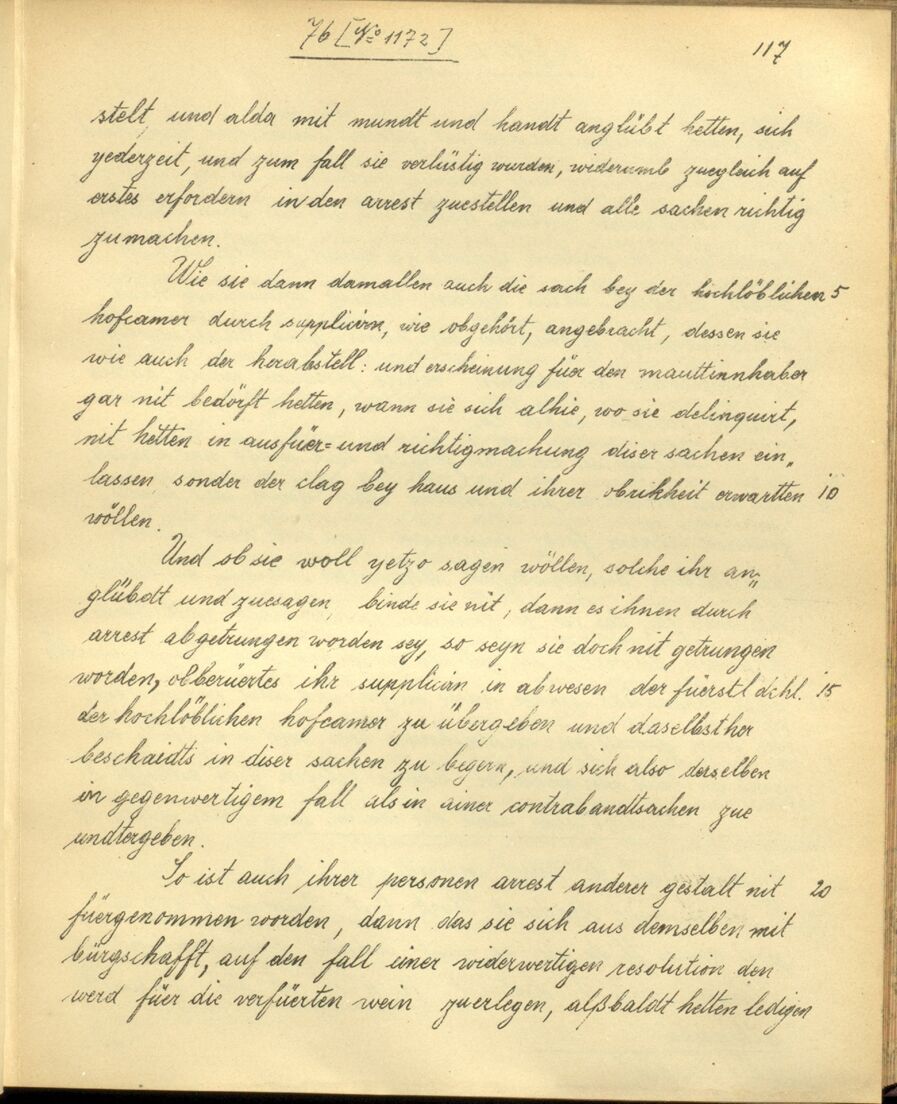 76 [No 1172]
117
stelt und alda mit mundt und handt anglübt hetten, sich
yederzeit, und zum fall sie verlüstig wurden, widerumb zuegleich auf
erstes erfordern in den arrest zuestellen und alle sachen richtig
zumachen.
Wie sie dann damallen auch die sach bey der hochlöblichen 5
hofcamer durch supplicirn, wie obgehört, angebracht, dessen sie
wie auch der herabstell: und erscheinung für den mauttinnhaber
gar nit bedörft hetten, wann sie sich alhie, wo sie delinquirt,
nit hetten in ausfüer= und richtigmachung diser sachen ein„
lassen, sonder der clag bey haus und ihrer obrikheit erwartten 10
wöllen.
Und ob sie woll yetzo sagen wöllen, solche ihr an„
glübdt und zuesagen, binde sie nit, dann es ihnen durch
arrest abgetrungen worden sey, so seyn sie doch nit getrungen
worden, obberüertes ihr supplicirn in abwesen der fürstl dchl. 15
der hochlöblichen hofcamer zu übergeben und daselbst her
beschaidts in diser sachen zu begern, und sich also derselben
in gegenwertigem fall als in ainer contrabandtsachen zue
undtergeben.
So ist auch ihrer personen arrest anderer gestalt nit 20
fürgenommen worden, dann das sie sich aus demselben mit
bürgschafft, auf den fall einer widerwertigen resolution den
werd für die verfüerten wein zuerlegen, alßbaldt hetten ledigen